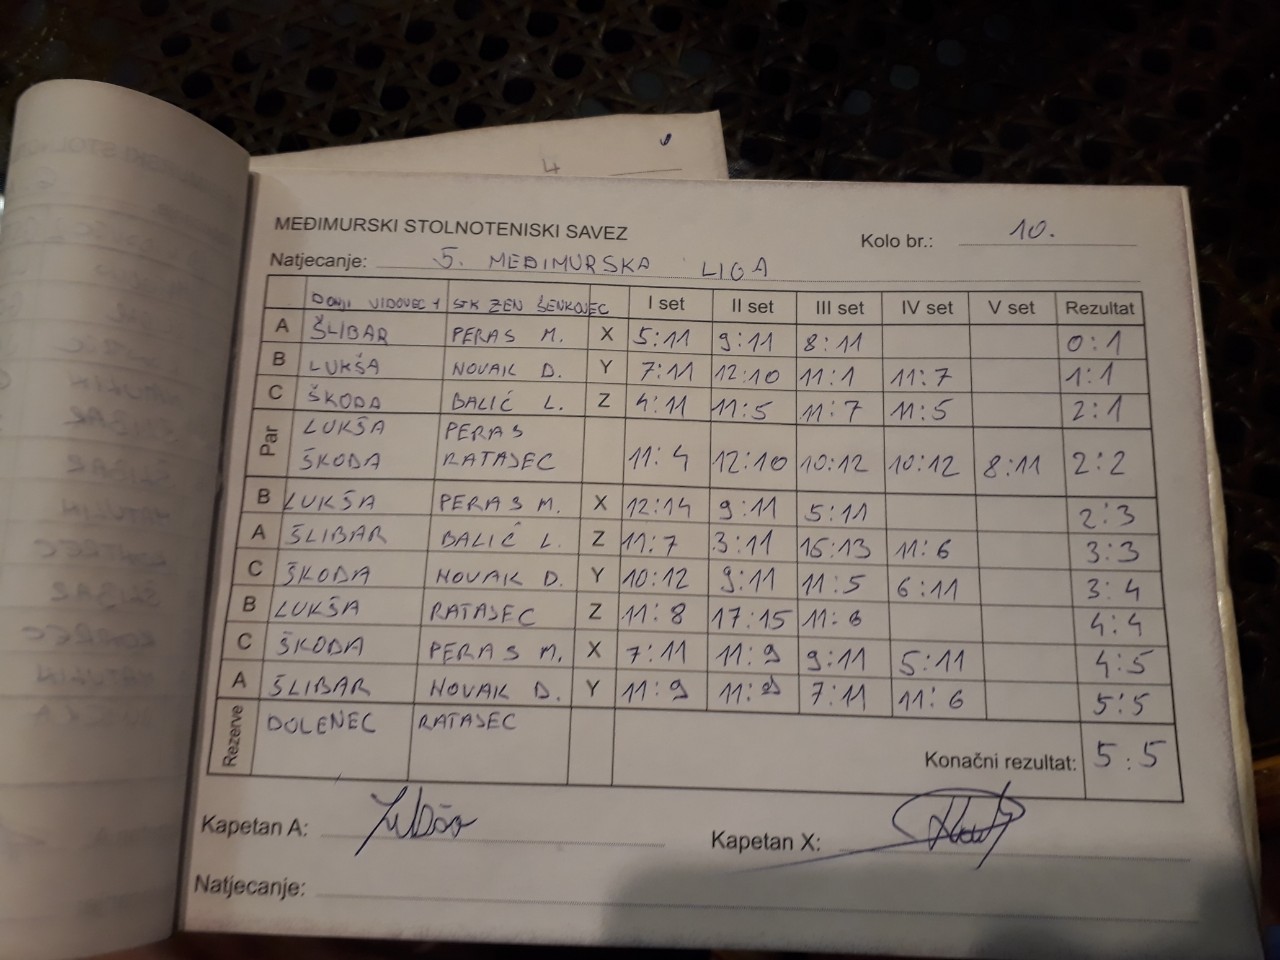 4
MEĐIMURSKI STOLNOTENISKI SAVEZ
Kolo br.: 10.
Natjecanje: 5. MEĐIMURSKA LIGA
DONJI VIDOVEC 1 STK ZEN ŠENKOVEC I set II set III set IV set V set Rezultat
A ŠLIBAR PERAS M. X 5:11 9:11 8:11 0:1
B LUKŠA NOVAK D. Y 7:11 12:10 11:1 11:7 1:1
C ŠKODA BALIĆ L. Z 4:11 11:5 11:7 11:5 2:1
Par LUKŠA PERAS
ŠKODA RATAJEC 11:4 12:10 10:12 10:12 8:11 2:2
B LUKŠA PERAS M. X 12:14 9:11 5:11 2:3
A ŠLIBAR BALIĆ L. Z 11:7 3:11 15:13 11:6 3:3
C ŠKODA NOVAK D. Y 10:12 9:11 11:5 6:11 3:4
B LUKŠA RATAJEC Z 11:8 17:15 11:6 4:4
C ŠKODA PERAS M. X 7:11 11:9 9:11 5:11 4:5
A ŠLIBAR NOVAK D. Y 11:9 11:9 7:11 11:6 5:5
Rezerve DOLENEC RATAJEC
Konačni rezultat: 5:5
Kapetan A:
Kapetan X:
Natjecanje: